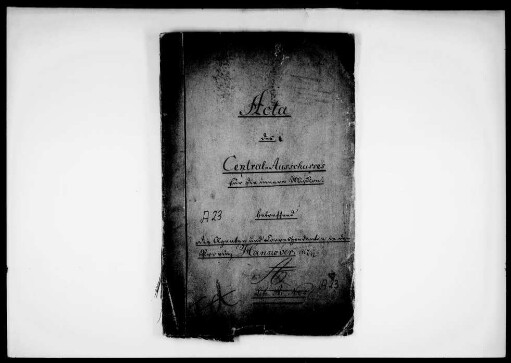 Acta
des
Central-Ausschusses
für die innere Mission
A 23
betreffend
die Agenten und Correspondenten in der
Provinz Hannover.